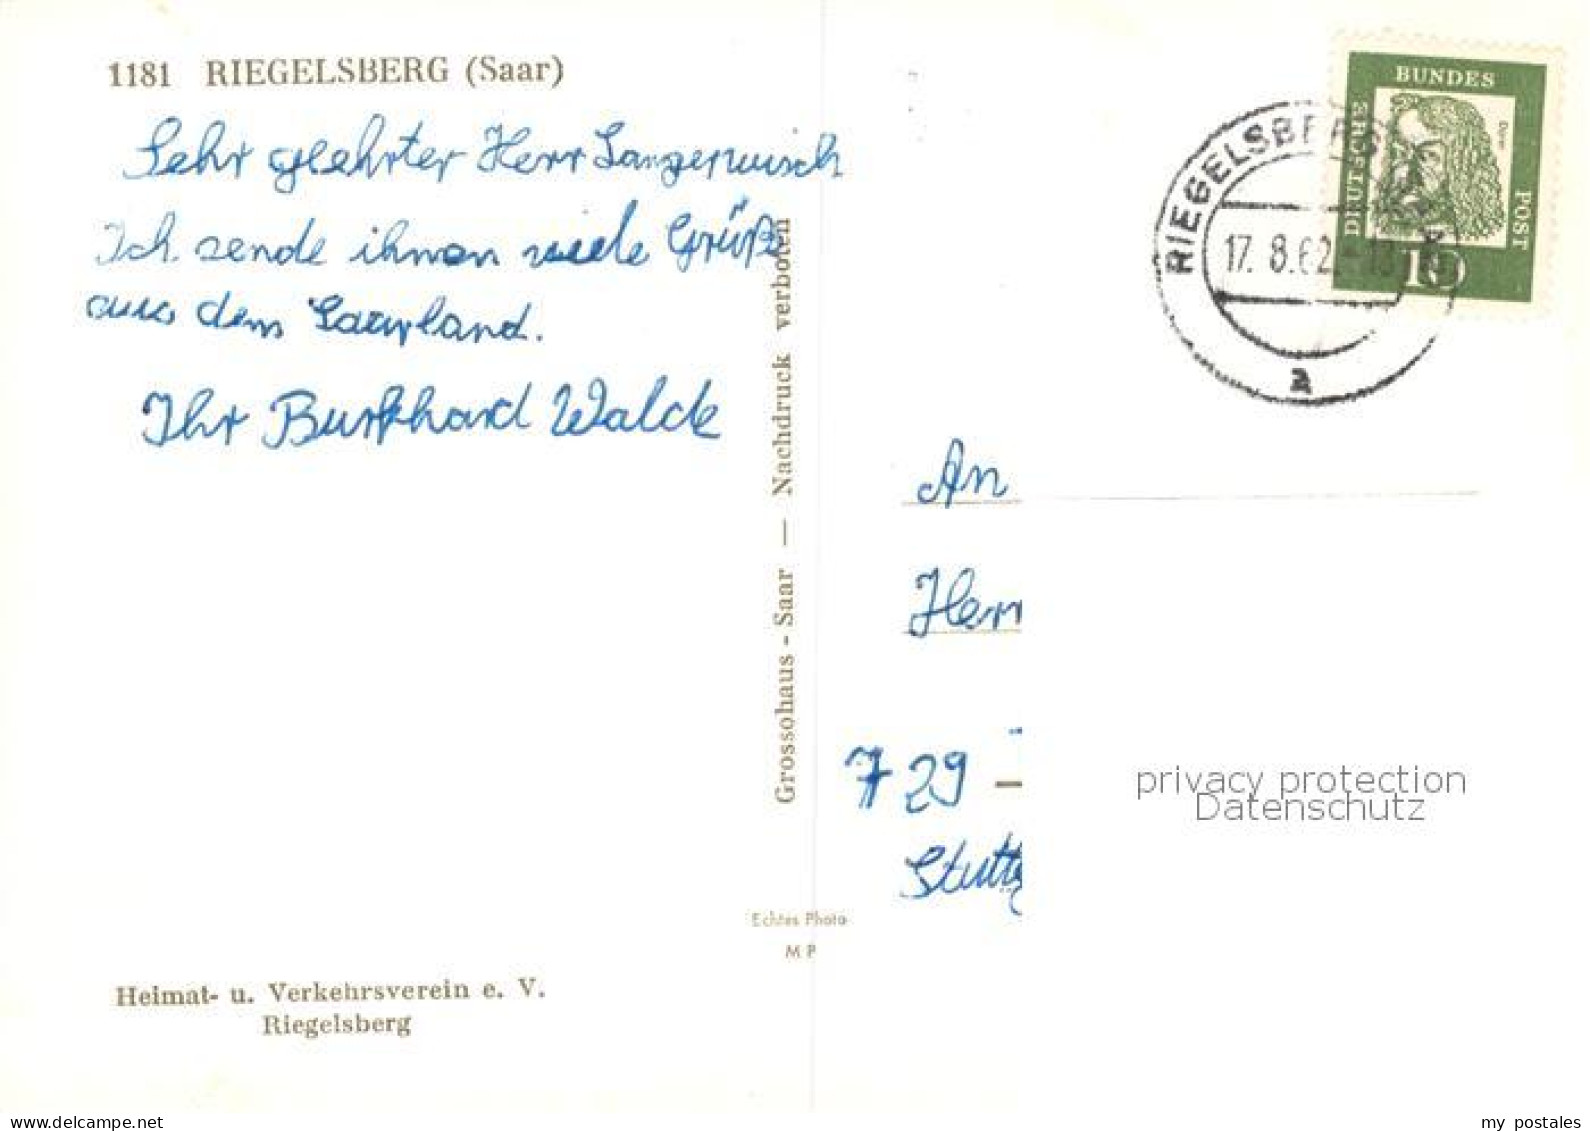 1181 RIEGELSBERG (Saar)
Sehr geehrter Herr Langerwisch
Ich sende ihnen viele Grüße
aus dem Saarland.
Ihr Burkhard Walde
Grossohaus - Saar — Nachdruck verboten
Echtes Photo
M P
Heimat- u. Verkehrsverein e. V.
Riegelsberg
DEUTSCHE BUNDES POST
Dürer
10
RIEGELSBERG
17. 8.62
a
An
Herr
7 29
Stuttg
privacy protection
Datenschutz
www.delcampe.net
my_postales